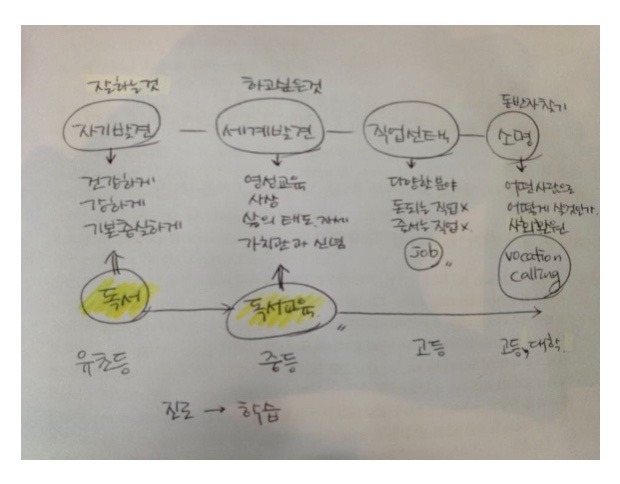 잘하는것 하고싶은것 동반자찾기
자기발견 — 세계발견 — 직업선택 — 소명
건강하게
강하게
기본충실하게
영성교육
사상
삶의 태도.자세
가치관과 신념
다양한 분야
돈되는 직업 x
줄서는 직업 x
Job
어떤사람으로
어떻게 살것인가.
사회환원
vocation
calling
독서 → 독서교육 →
유초등 중등 고등 고등, 대학.
진로 → 학습